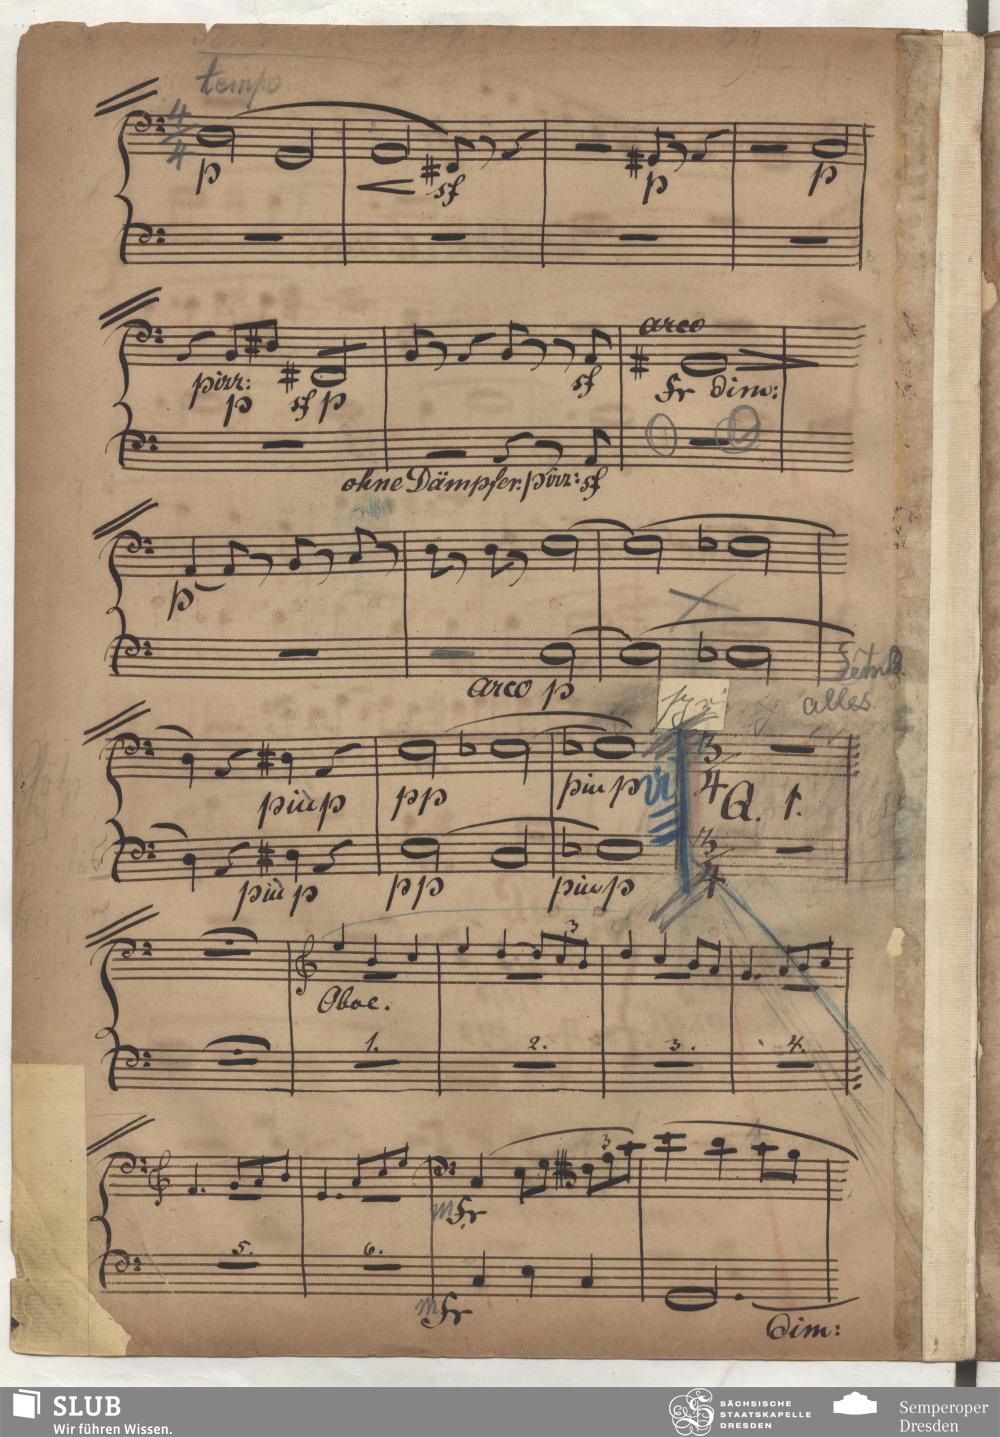 tempo
4
4
p sf p p
pizz: arco
p sf p sf fr dim:
ohne Dämpfer. pizz: sf
p
arco p
alles
più p pp più p 3
4 G. 1.
3
più p pp più p 4
3
Oboe.
1. 2. 3. 4.
3
mfr
5. 6.
mfr
dim:
SLUB
Wir führen Wissen.
SÄCHSISCHE
STAATSKAPELLE
DRESDEN
Semperoper
Dresden